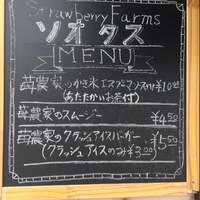 Strawberry Farms
ソオタス
MENU
苺農家のかき氷エスプーマソース付¥10.00
(あたたかいお茶付)
苺農家のスムージー ¥4.50
苺農家のクラッシュアイスバーガー ¥5.50
(クラッシュアイスのみ¥3.00)